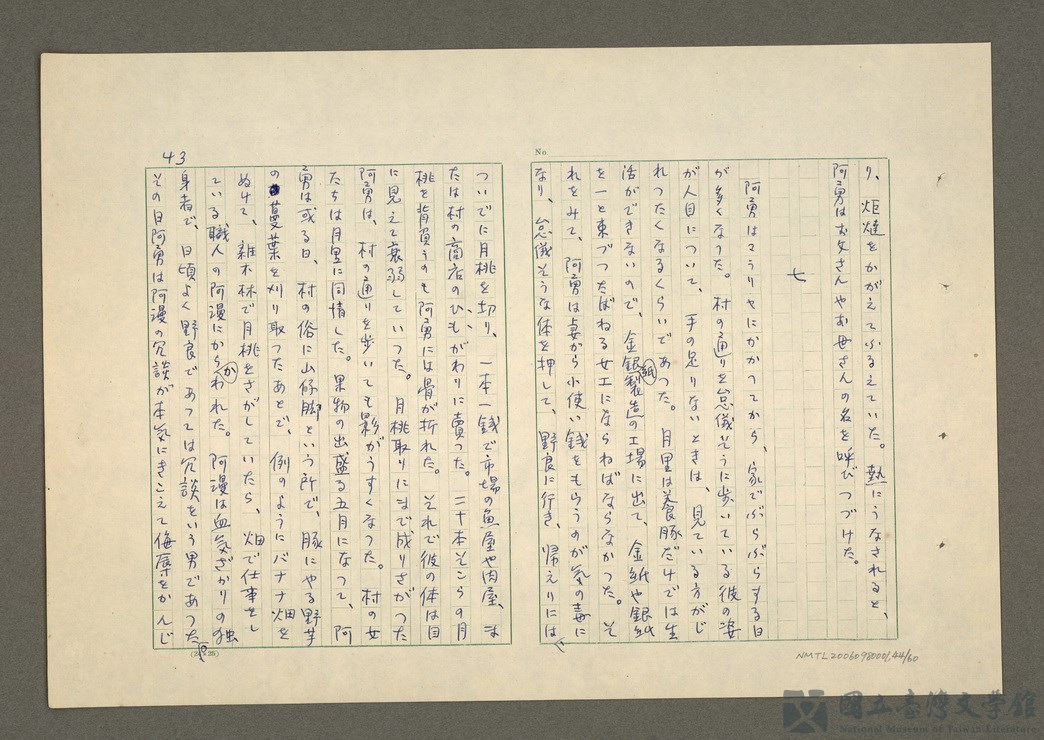 No.
り、炬燵をかがえてふるえていた。熱にうなされると、
阿勇はお父さんやお母さんの名を呼びつづけた。
七
阿勇はマラリヤにかかってから、家でぶらぶらする日
が多くなった。村の通りを怠儀そうに歩いている彼の姿
が人目について、手の足りないときは、見ている方がじ
れったくなるくらいであった。月里は養豚だけでは生
活ができないので、金銀紙製造の工場に出て、金紙や銀紙
を一と束づつたばねる女工にならねばならなかった。そ
れをみて、阿勇は妻から小使い銭をもらうのが気の毒に
なり、怠儀そうな体を押して、野良に行き、帰えりには
43
ついでに月桃を切り、一本一銭で市場の魚屋や肉屋、ま
たは村の商店のひもがわりに賣った。二十本そこらの月
桃を背負うのも阿勇には骨が折れた。それで彼の体は目
に見えて衰弱していった。月桃取りにまで成りさがった
阿勇は、村の通りを歩いても影がうすくなった。村の女
たちは月里に同情した。果物の出盛る五月になって、阿
勇は或る日、村の俗に山仔脚という所で、豚にやる野芋
の蔓葉を刈り取ったあとで、例のようにバナナ畑を
ぬけて、雑木林で月桃をさがしていたら、畑で仕事をし
ている職人の阿漫にからかわれた。阿漫は血気ざかりの独
身者で、日頃よく野良であっては冗談をいう男であった。
その日阿勇は阿漫の冗談が本気にきこえて侮辱をかんじ
(24×25)
NMTL20060980001,44/60
國立臺灣文學館
National Museum of Taiwan Literature